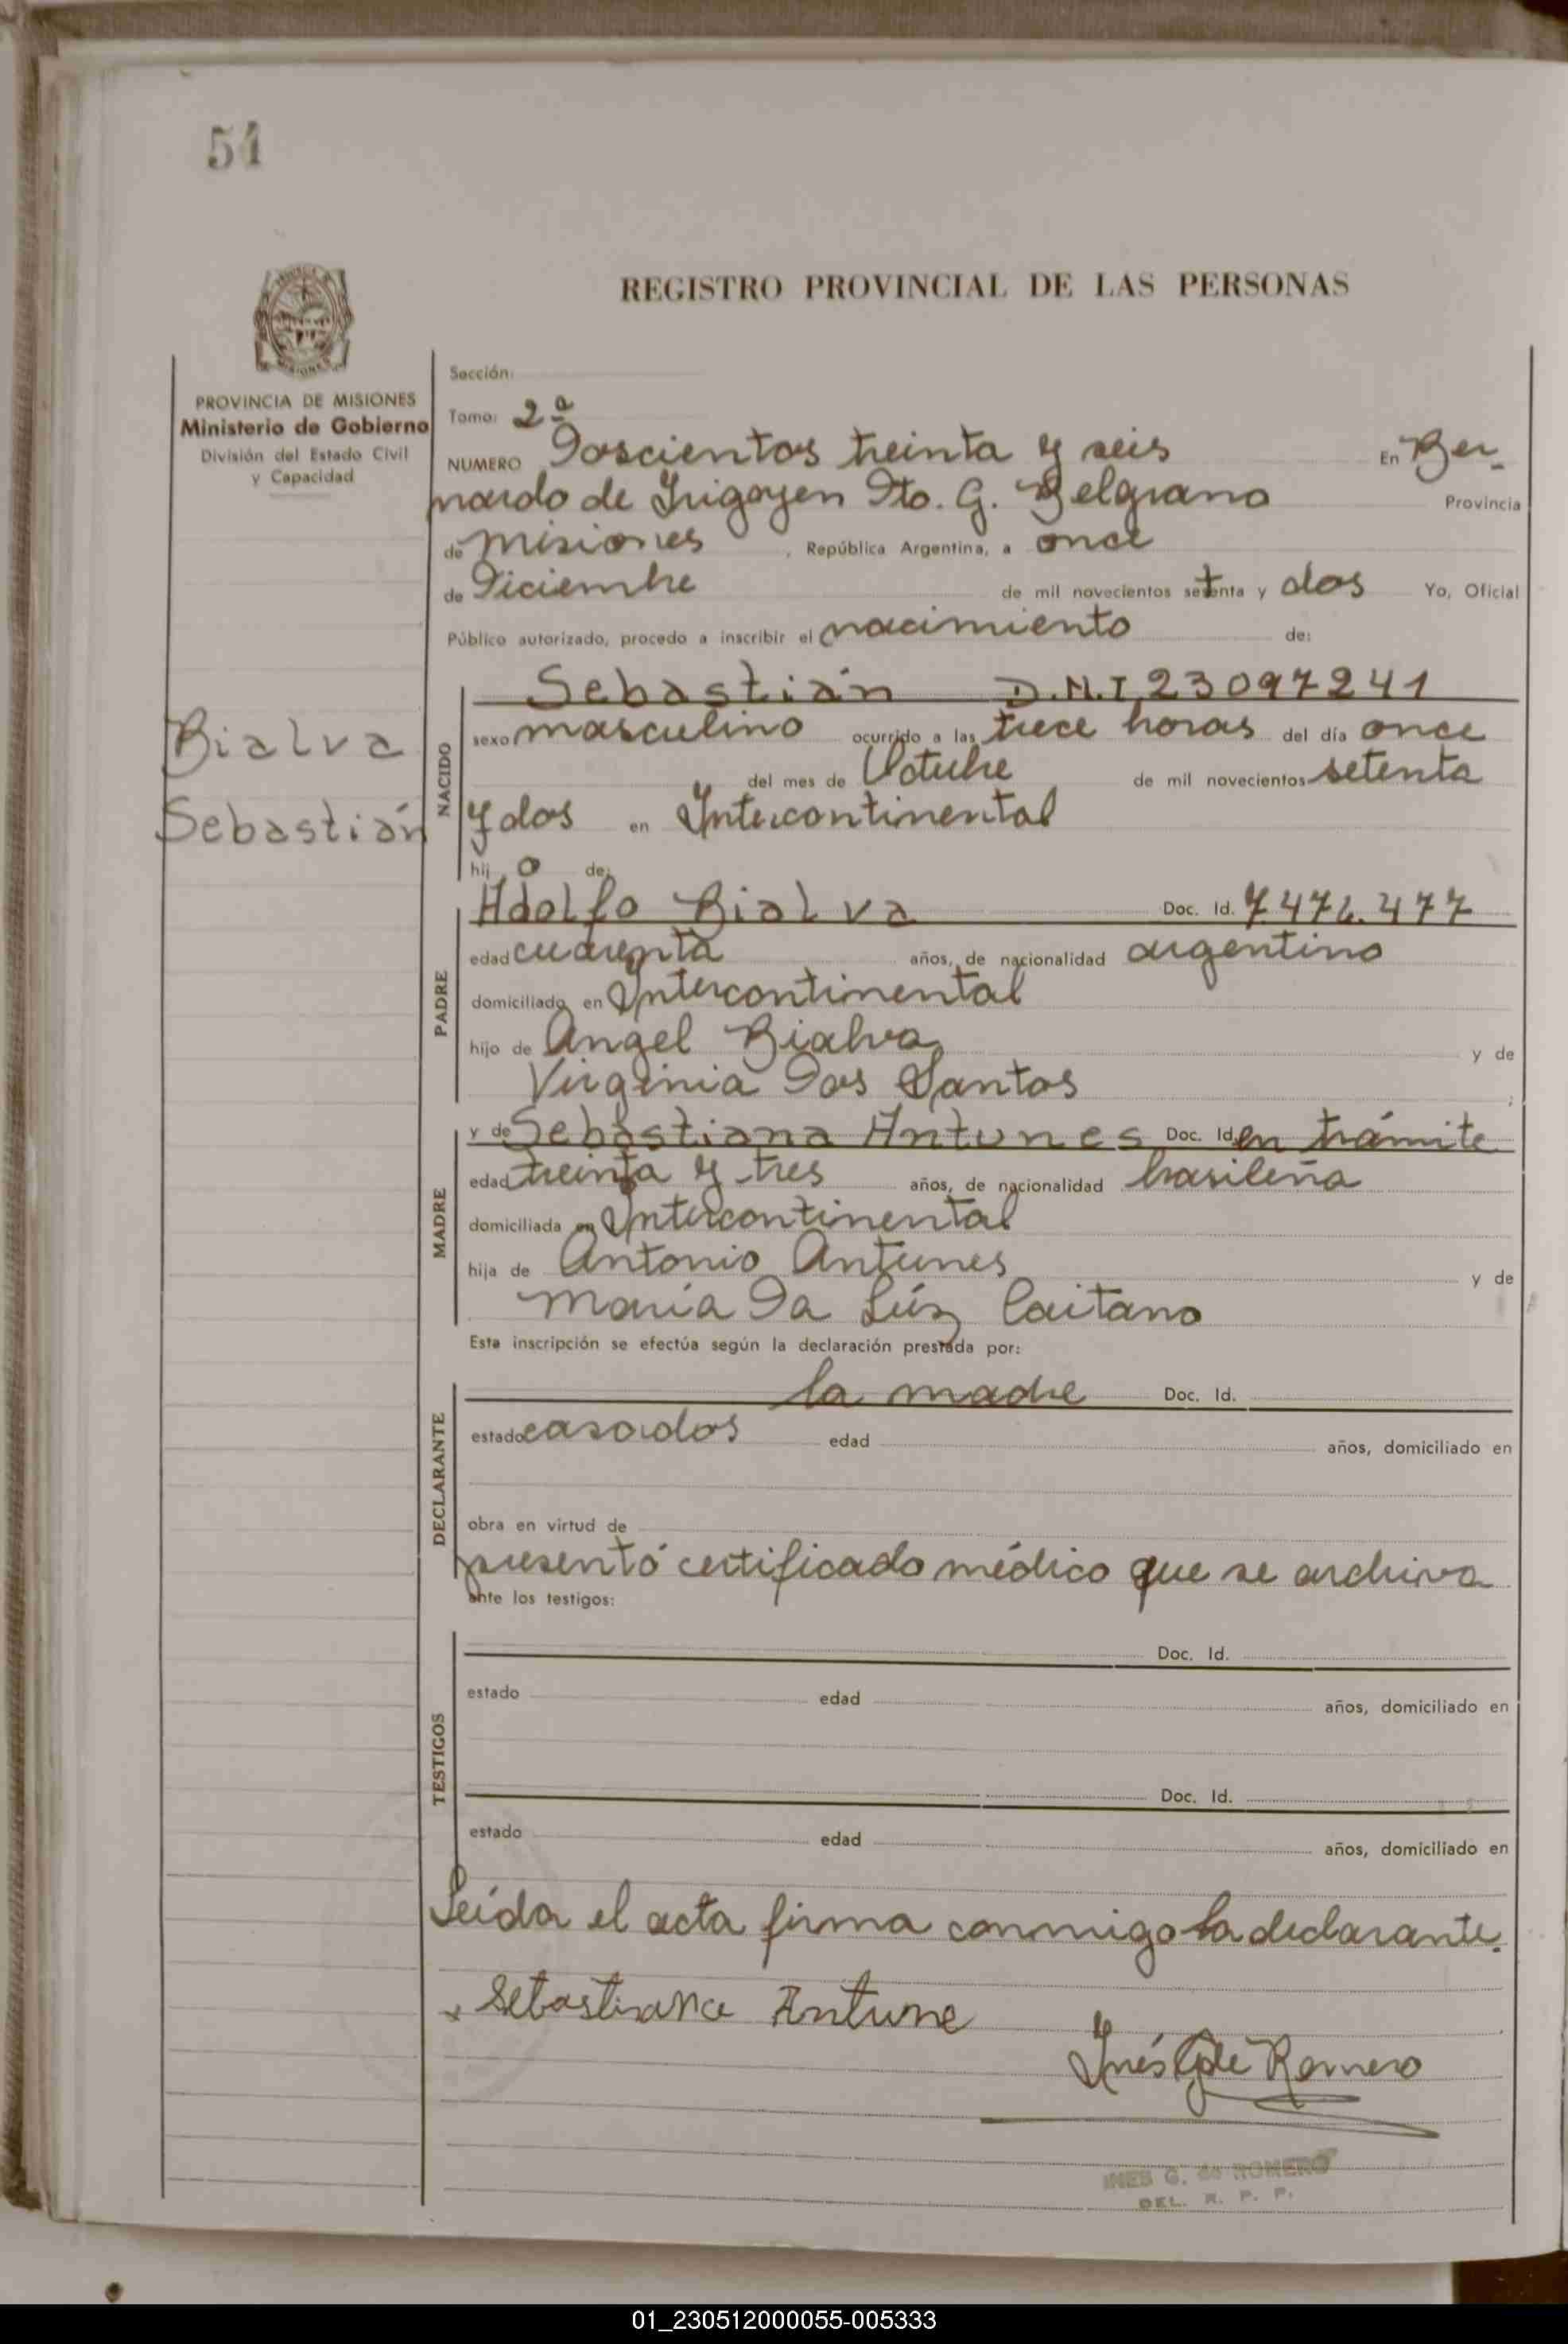 51
REGISTRO PROVINCIAL DE LAS PERSONAS
MISIONES
PROVINCIA DE MISIONES
Ministerio de Gobierno
División del Estado Civil
y Capacidad
Bialva
Sebastián
Sección:
Tomo: 2ª
NUMERO Doscientos treinta y seis En Ber-
nardo de Irigoyen Dto. G. Belgrano Provincia
de Misiones, República Argentina, a once
de Diciembre de mil novecientos setenta y dos Yo, Oficial
Público autorizado, procedo a inscribir el nacimiento de:
NACIDO
Sebastián D.N.I 23097241
sexo masculino ocurrido a las trece horas del día once
del mes de Octubre de mil novecientos setenta
y dos en Intercontinental
hij o de:
PADRE
Adolfo Bialva Doc. Id. 7.472.477
edad cuarenta años, de nacionalidad argentino
domiciliado en Intercontinental
hijo de Angel Bialva y de
Virginia Dos Santos ;
MADRE
y de Sebastiana Antunes Doc. Id. en trámite
edad treinta y tres años, de nacionalidad brasileña
domiciliada en Intercontinental
hija de Antonio Antunes y de
María Da Lúz Caitano
Esta inscripción se efectúa según la declaración prestada por:
DECLARANTE
la madre Doc. Id.
estado casados edad años, domiciliado en
obra en virtud de
presentó certificado médico que se archiva
ante los testigos:
TESTIGOS
Doc. Id.
estado edad años, domiciliado en
Doc. Id.
estado edad años, domiciliado en
Leída el acta firma conmigo la declarante.
Sebastiana Antune
Inés G de Romero
INES G. de ROMERO
DEL. R. P. P.
01_230512000055-005333